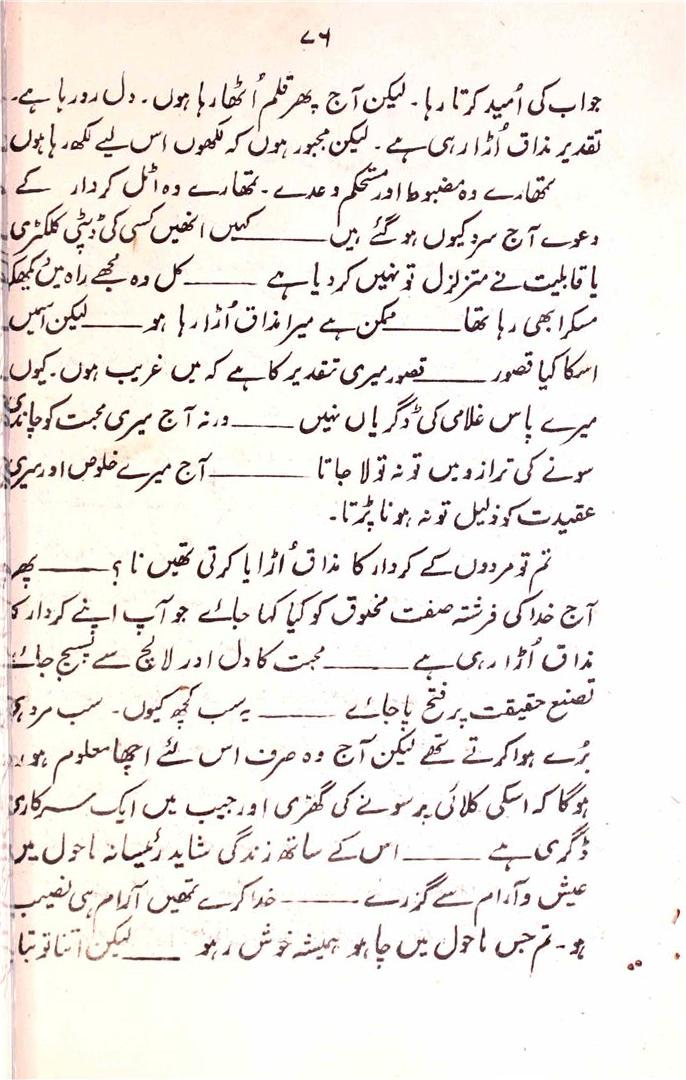 ۷۶
جواب کی اُمید کرتا رہا۔ لیکن آج پھر قلم اُٹھا رہا ہوں۔ دل رو رہا ہے۔
تقدیر مذاق اُڑا رہی ہے۔ لیکن مجبور ہوں کہ لکھوں اس لیے لکھ رہا ہوں
تمھارے وہ مضبوط اور مستحکم وعدے۔ تمھارے وہ اٹل کردار کے
دعوے آج سرد کیوں ہو گئے ہیں ——— کہیں انھیں کسی کی ڈپٹی کلکٹری
یا قابلیت نے متزلزل تو نہیں کر دیا ہے ——— کل وہ مجھے راہ میں دیکھکر
مسکرا بھی رہا تھا ——— ممکن ہے میرا مذاق اُڑا رہا ہو ——— لیکن اسمیں
اسکا کیا قصور ——— قصور میری تقدیر کا ہے کہ میں غریب ہوں۔ کیوں
میرے پاس غلامی کی ڈگریاں نہیں ——— ورنہ آج میری محبت کو چاندی
سونے کی ترازو میں تو نہ تولا جاتا ——— آج میرے خلوص اور میری
عقیدت کو ذلیل تو نہ ہونا پڑتا۔
تم تو مردوں کے کردار کا مذاق اُڑایا کرتی تھیں نا؟ ——— پھر
آج خدا کی فرشتہ صفت مخلوق کو کیا کہا جائے جو آپ اپنے کردار کا
مذاق اُڑا رہی ہے ——— محبت کا دل اور لالچ سے پسیج جائے
تصنع حقیقت پر فتح پا جائے ——— یہ سب کچھ کیوں۔ سب مرد ہی
بُرے ہوا کرتے تھے لیکن آج وہ صرف اس لئے اچھا معلوم ہو رہا
ہوگا کہ اسکی کلائی پر سونے کی گھڑی اور جیب میں ایک سرکاری
ڈگری ہے ——— اس کے ساتھ زندگی شاید رئیسانہ ماحول میں
عیش و آرام سے گزرے ——— خدا کرے تمھیں آرام ہی نصیب
ہو۔ تم جس ماحول میں چاہو ہمیشہ خوش رہو ——— لیکن اتنا تو بتا